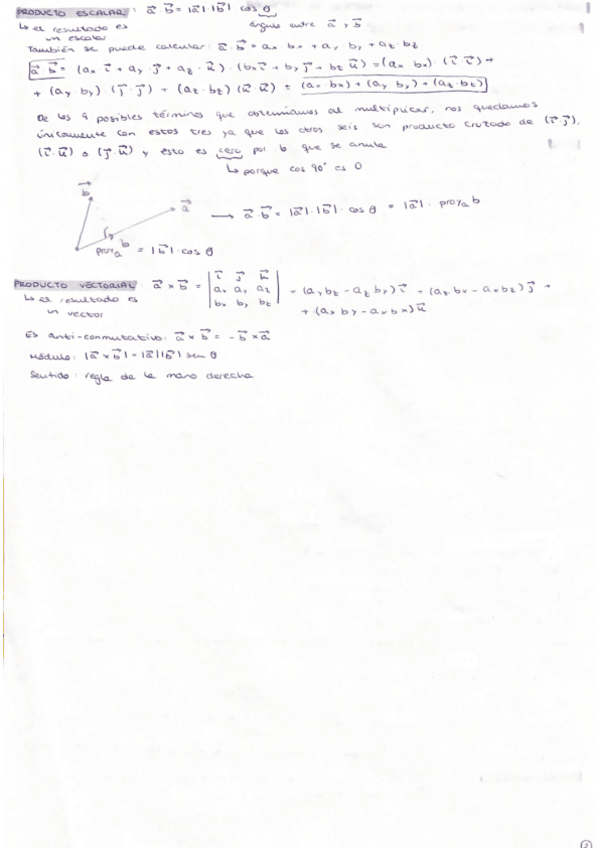 PRODUCTO ESCALAR: a⃗ · b⃗ = |a⃗| · |b⃗| cos θ
↳ el resultado es un escalar
ángulo entre a⃗ y b⃗
También se puede calcular: a⃗ · b⃗ = ax bx + ay by + az bz
a⃗ b⃗ = (ax i⃗ + ay · j⃗ + az · u⃗) · (bx i⃗ + by j⃗ + bz u⃗) = (ax bx) · (i⃗ · i⃗) +
+ (ay by) · (j⃗ · j⃗) + (az · bz) (u⃗ · u⃗) = (ax bx) + (ay by) + (az · bz)
De los 9 posibles términos que obteníamos al multiplicar, nos quedamos
únicamente con estos tres ya que los otros seis son producto cruzado de (i⃗ · j⃗),
(i⃗ · u⃗) o (j⃗ · u⃗) y esto es cero por lo que se anula
↳ porque cos 90° es 0
b⃗
a⃗
→ a⃗ · b⃗ = |a⃗| · |b⃗| · cos θ = |a⃗| · proyₐ b
proyₐ b = |b⃗| · cos θ
PRODUCTO VECTORIAL a⃗ × b⃗ = | i⃗ j⃗ u⃗ | = (ay bz - az by) i⃗ + (az bx - ax bz) j⃗ +
| ax ay az |
| bx by bz |
+ (ax by - ay bx) u⃗
↳ el resultado es un vector
Es anti-conmutativo: a⃗ × b⃗ = - b⃗ × a⃗
Módulo: |a⃗ × b⃗| = |a⃗| |b⃗| sen θ
Sentido: regla de la mano derecha
2